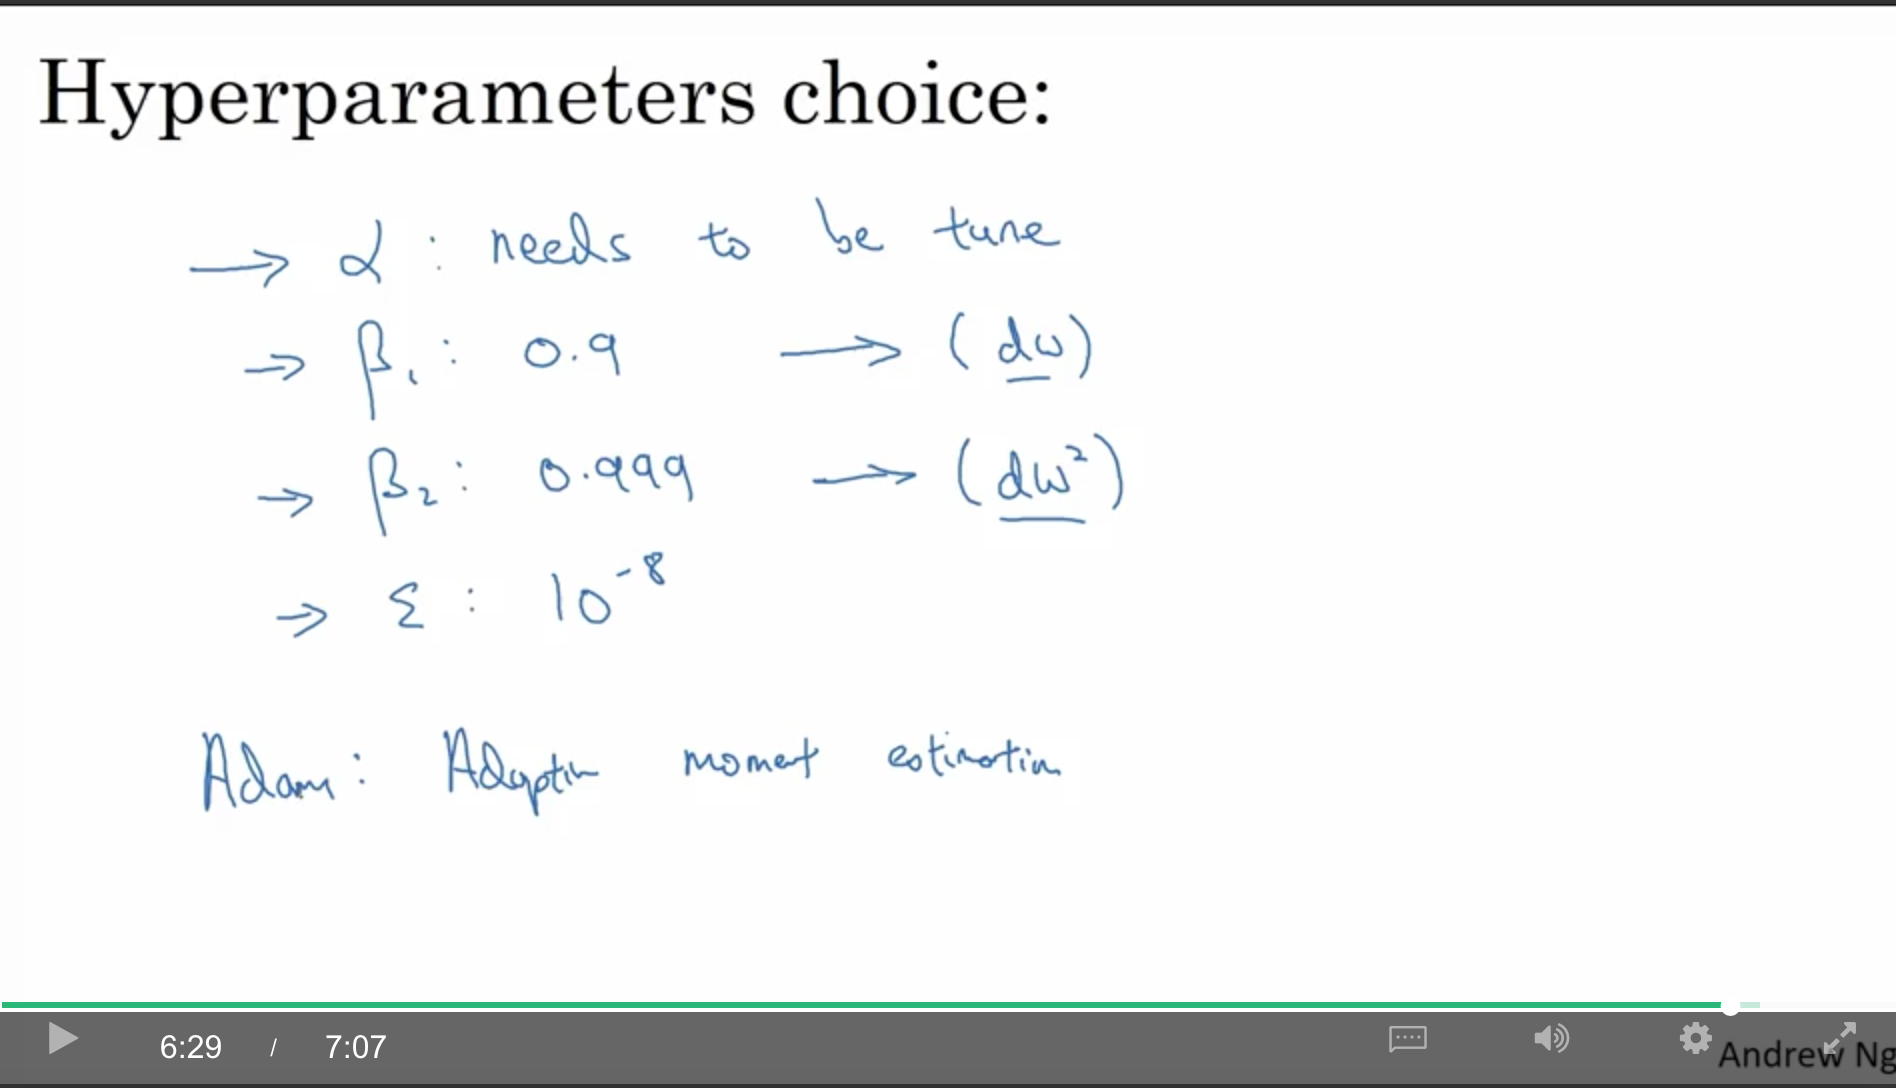 Hyperparameters choice:
→ α : needs to be tune
→ β₁ : 0.9 → (dw)
→ β₂ : 0.999 → (dw²)
→ ε : 10⁻⁸
Adam : Adaptive moment estimation
6:29 / 7:07
Andrew Ng